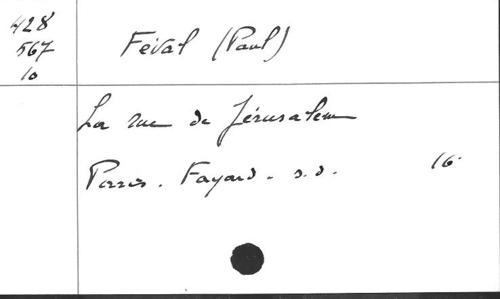 428
567
10
Féval (Paul)
La rue de Jérusalem
Paris. Fayard. s.d. 16.